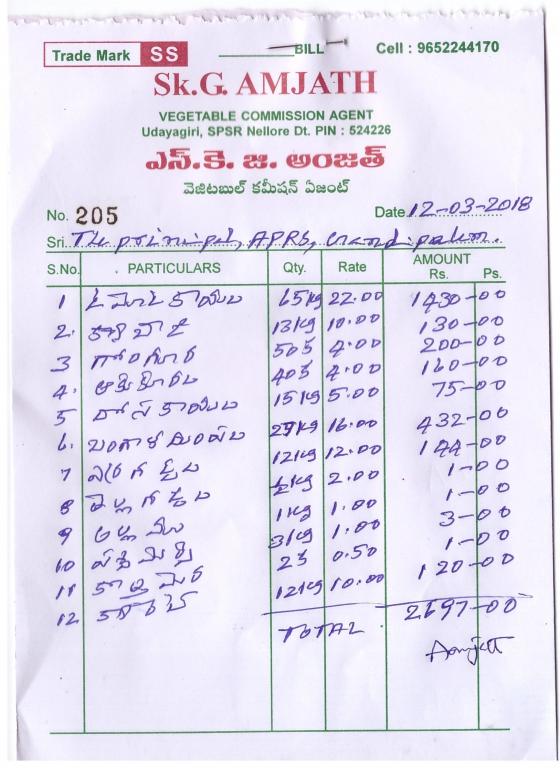 Trade Mark SS BILL Cell : 9652244170
Sk.G. AMJATH
VEGETABLE COMMISSION AGENT
Udayagiri, SPSR Nellore Dt. PIN : 524226
ఎస్.కె. జి. అంజత్
వెజిటబుల్ కమీషన్ ఏజంట్
No. 205 Date 12-03-2018
Sri. The principal, APRS,
S.No. PARTICULARS Qty. Rate AMOUNT
Rs. Ps.
1 65kg 22.00 1430-00
2. 13kg 10.00 130-00
3 గోంగూర 50క 4.00 200-00
4. ఆకుకూర 40క 4.00 160-00
5 దోసకాయలు 15kg 5.00 75-00
6. బంగాళదుంపలు 27kg 16.00 432-00
7 12kg 12.00 144-00
8 2.00 1-00
9 1kg 1.00 1-00
10 3kg 1.00 3-00
11 కొత్తిమీర 2క 0.50 1-00
12 12kg 10.00 120-00
TOTAL 2697-00
Amjath